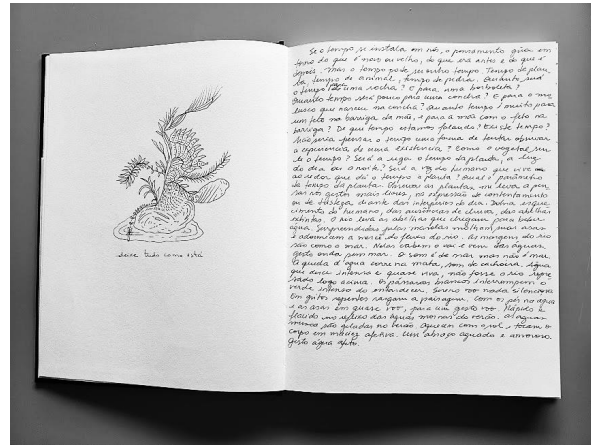 deixe tudo como está
Se o tempo se instala em nós, o pensamento gira em
torno do que é novo ou velho, do que era antes e do que é
depois. Mas o tempo pode ser outro tempo. Tempo de plan-
ta, tempo de animal, tempo de pedra. Quanto será
o tempo para uma rocha? E para uma borboleta?
Quanto tempo será pouco para uma concha? E para o mo-
lusco que nasceu na concha? Quanto tempo é muito para
um feto na barriga da mãe, e para a mãe com o feto na
barriga? De que tempo estamos falando? Existe tempo?
Não seria pensar o tempo uma forma de tentar abarcar
a experiência de uma existência? Como o vegetal sen-
te o tempo? Será a rega o tempo da planta, a luz
do dia ou a noite? Será a voz do humano que vive ao
ao redor que dá o tempo à planta? Qual o parâmetro
do tempo da planta? Observar as plantas me leva a pen-
sar nos gestos mais livres, na expressão de contentamento
ou de tristeza diante das intempéries do dia. Sobre esque-
cimento do humano, das ausências de chuva, das abelhas
O rio leva as abelhas que chegam para beber
água. Surpreendidas pelas marolas molham suas asas
e adormecem à mercê do fluxo do rio. As margens do rio
são como o mar. Nelas cabem o vai e vem das águas,
gesto onda sem mar. O som é de mar mas não é mar.
É queda d'água corre na mata, som de cachoeira. Água
que desce intensa e quase viva, não fosse o rio repre-
sado logo acima. Os pássaros brancos interrompem o
verde intenso do entardecer. Sereno voo nada silencioso
Em gritos repentes rasgam a paisagem. Com os pés na água
e as asas em quase voo, para um gesto voo. Rápido e
flácido no reflexo das águas mornas do verão. As águas
nunca são geladas no verão. Aquecem com o sol, tocam o
corpo em maciez afetiva. Um abraço aguado e amoroso.
Gesto água afeto.